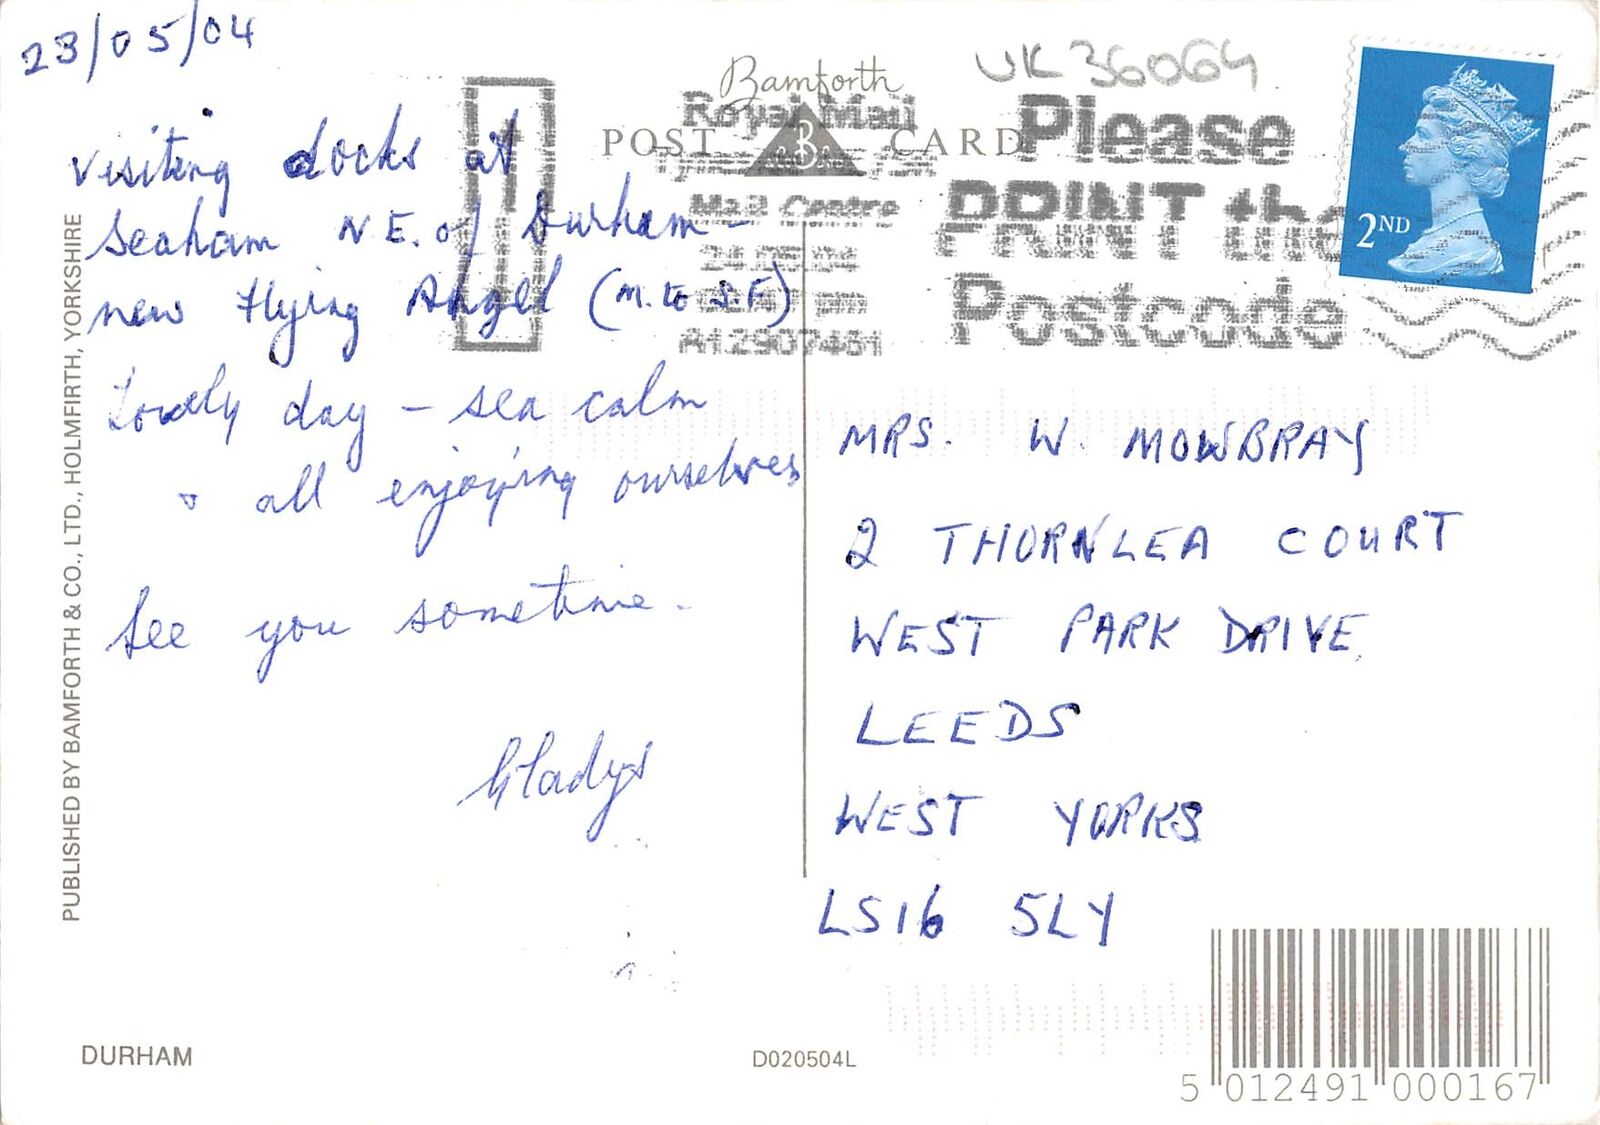 23/05/04
visiting docks at
Seaham N.E. of Durham -
new Flying Angel (M. to S.F.)
Lovely day - sea calm
& all enjoying ourselves
See you sometime.
Gladys
UK 36064
Bamforth
POST CARD
B
Royal Mail
Mail Centre
24.05.04
pm
Please
PRINT the
Postcode
2ND
MRS. W. MOWBRAY
2 THORNLEA COURT
WEST PARK DRIVE
LEEDS
WEST YORKS
LS16 5LY
PUBLISHED BY BAMFORTH & CO., LTD., HOLMFIRTH, YORKSHIRE
DURHAM
D020504L
5 012491 000167